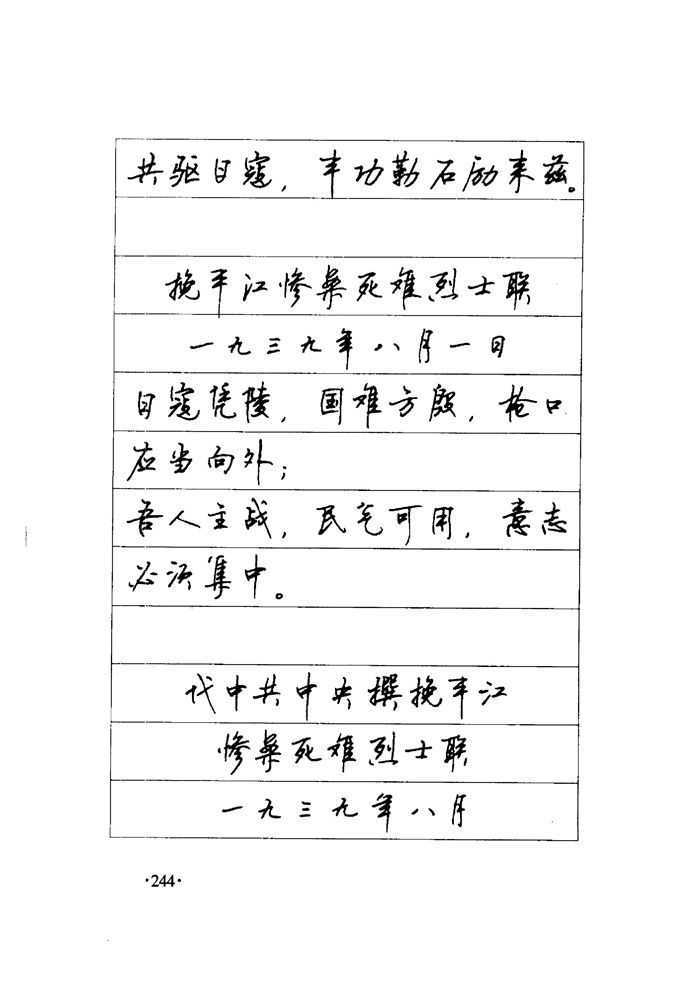 共驱日寇，丰功勒石励来兹。
挽平江惨案死难烈士联
一九三九年八月一日
日寇凭陵，国难方殷，枪口
应当向外；
吾人主战，民气可用，意志
必须集中。
代中共中央撰挽平江
惨案死难烈士联
一九三九年八月
·244·